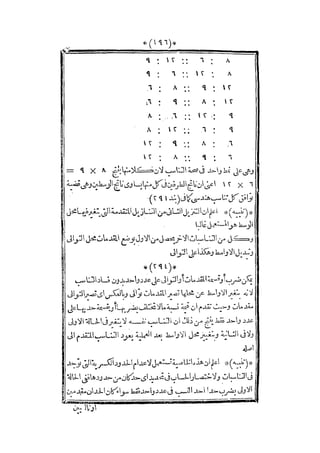 *(١٩٦)*
٨ : ٦ :: ١٢ : ٩
٨ : ١٢ :: ٦ : ٩
١٢ : ٩ :: ٨ : ٦
١٢ : ٨ :: ٩ : ٦
٩ : ١٢ :: ٦ : ٨
٩ : ٦ :: ١٢ : ٨
٦ : ٨ :: ٩ : ١٢
٦ : ٩ :: ٨ : ١٢
وهى على نمط واحد فى صحة التناسب لان كلا منها ينتج ٨ × ٩ =
٦ × ١٢ اعنى ان ناتج الطرفين فى كل منها يساوى ناتج الوسطين وهى قضية
توافق كل تناسب هندسى كما فى (بند ٢٩١)
*(تنبيه)* اعلم ان التنزيل الثانى من التنازيل المتقدمة التى يتغير فيها محل
الوسط هو المستعمل غالبا
وكل من التناسبات الاخر يحصل من الاول بوضع المقدمات محل التوالى
وتبديل الاواسط وهكذا على التوالى
*(٢٩٤)*
يمكن ضرب أو قسمة المقدمات أو التوالى على عدد واحد بدون فساد التناسب
لانه بتغير الاواسط عن محلها تصير المقدمات توالى وبالعكس اى تصير التوالى
مقدمات وحيث تقدم ان قيمة نسبة ما لا تختلف بضرب أو قسمة حديها على
عدد واحد فقط ينتج من ذلك ان التناسب نفسه لا يتغير فى الحالة الاولى
ولا فى الثانية وبتغيير محل الاواسط بعد العملية يعود التناسب المتقدم الى
اصله
*(تنبيه)* اعلم ان هذه الخاصية تستعمل لاعدام الحدود الكسرية التى توجد
فى التناسبات ولاختصار الحساب فى تحديد اى حد كان من حدودها ففى الحالة
الاولى يضرب حدا احد النسب فى عدد واحد فقط سواء كان الحدان مقدمين
اوتاليين